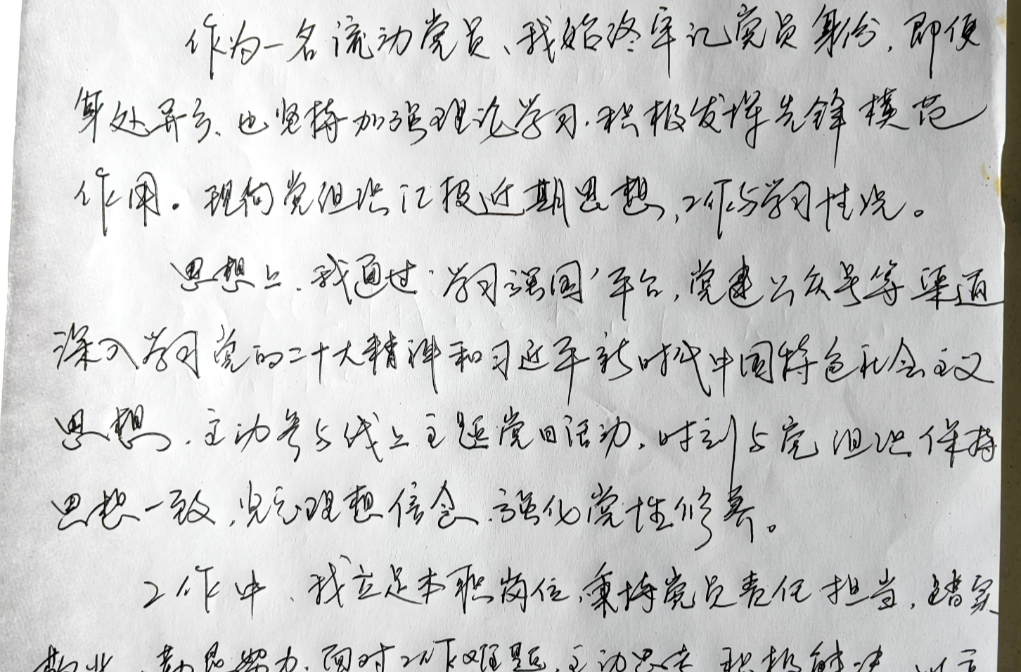 作为一名流动党员、我始终牢记党员身份,即便
身处异乡、也坚持加强理论学习.积极发挥先锋模范
作用。现向党组织汇报近期思想,工作与学习情况。
思想上.我通过"学习强国"平台,党建公众号等渠道
深入学习党的二十大精神和习近平新时代中国特色社会主义
思想.主动参与线上主题党日活动,时刻与党组织保持
思想一致,坚定理想信念.强化党性修养。
工作中.我立足本职岗位,秉持党员责任担当,踏实
勤恳努力,面对工作难题,主动思考 积极解决